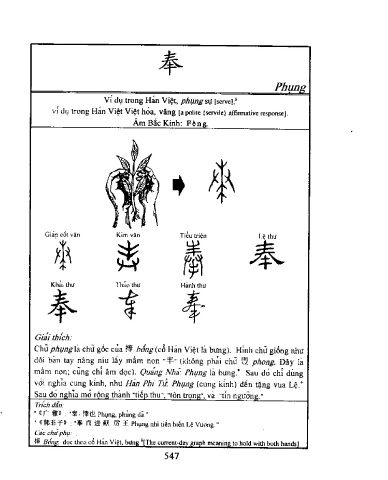 奉
Phụng
Ví dụ trong Hán Việt, phụng sự [serve].
ví dụ trong Hán Việt Việt hóa, vâng [a polite (servile) affirmative response].
Âm Bắc Kinh: Fèng.
Giáp cốt văn Kim văn Tiểu triện Lệ thư
奉
Khải thư Thảo thư Hành thư
奉
Giải thích:
Chữ phụng là chữ gốc của 捧 bổng (cổ Hán Việt là bưng). Hình chữ giống như
đôi bàn tay nâng niu lấy mầm non "丰" (không phải chữ phong. Đây là
mầm non; cũng chỉ âm đọc). Quảng Nhã Phụng là bưng. Sau đó chỉ dùng
với nghĩa cung kính, như Hàn Phi Tử Phụng (cung kính) đến tặng vua Lệ.
Sau đó nghĩa mở rộng thành "tiếp thu", "tôn trọng", và "tín ngưỡng."
Trích dẫn:
"奉, 捧也 Phụng, phủng dã"
Phụng nhi tiến hiến Lệ Vương.
Các chữ phụ:
捧 Bổng: đọc theo cổ Hán Việt, bưng [The current-day graph meaning to hold with both hands]
547